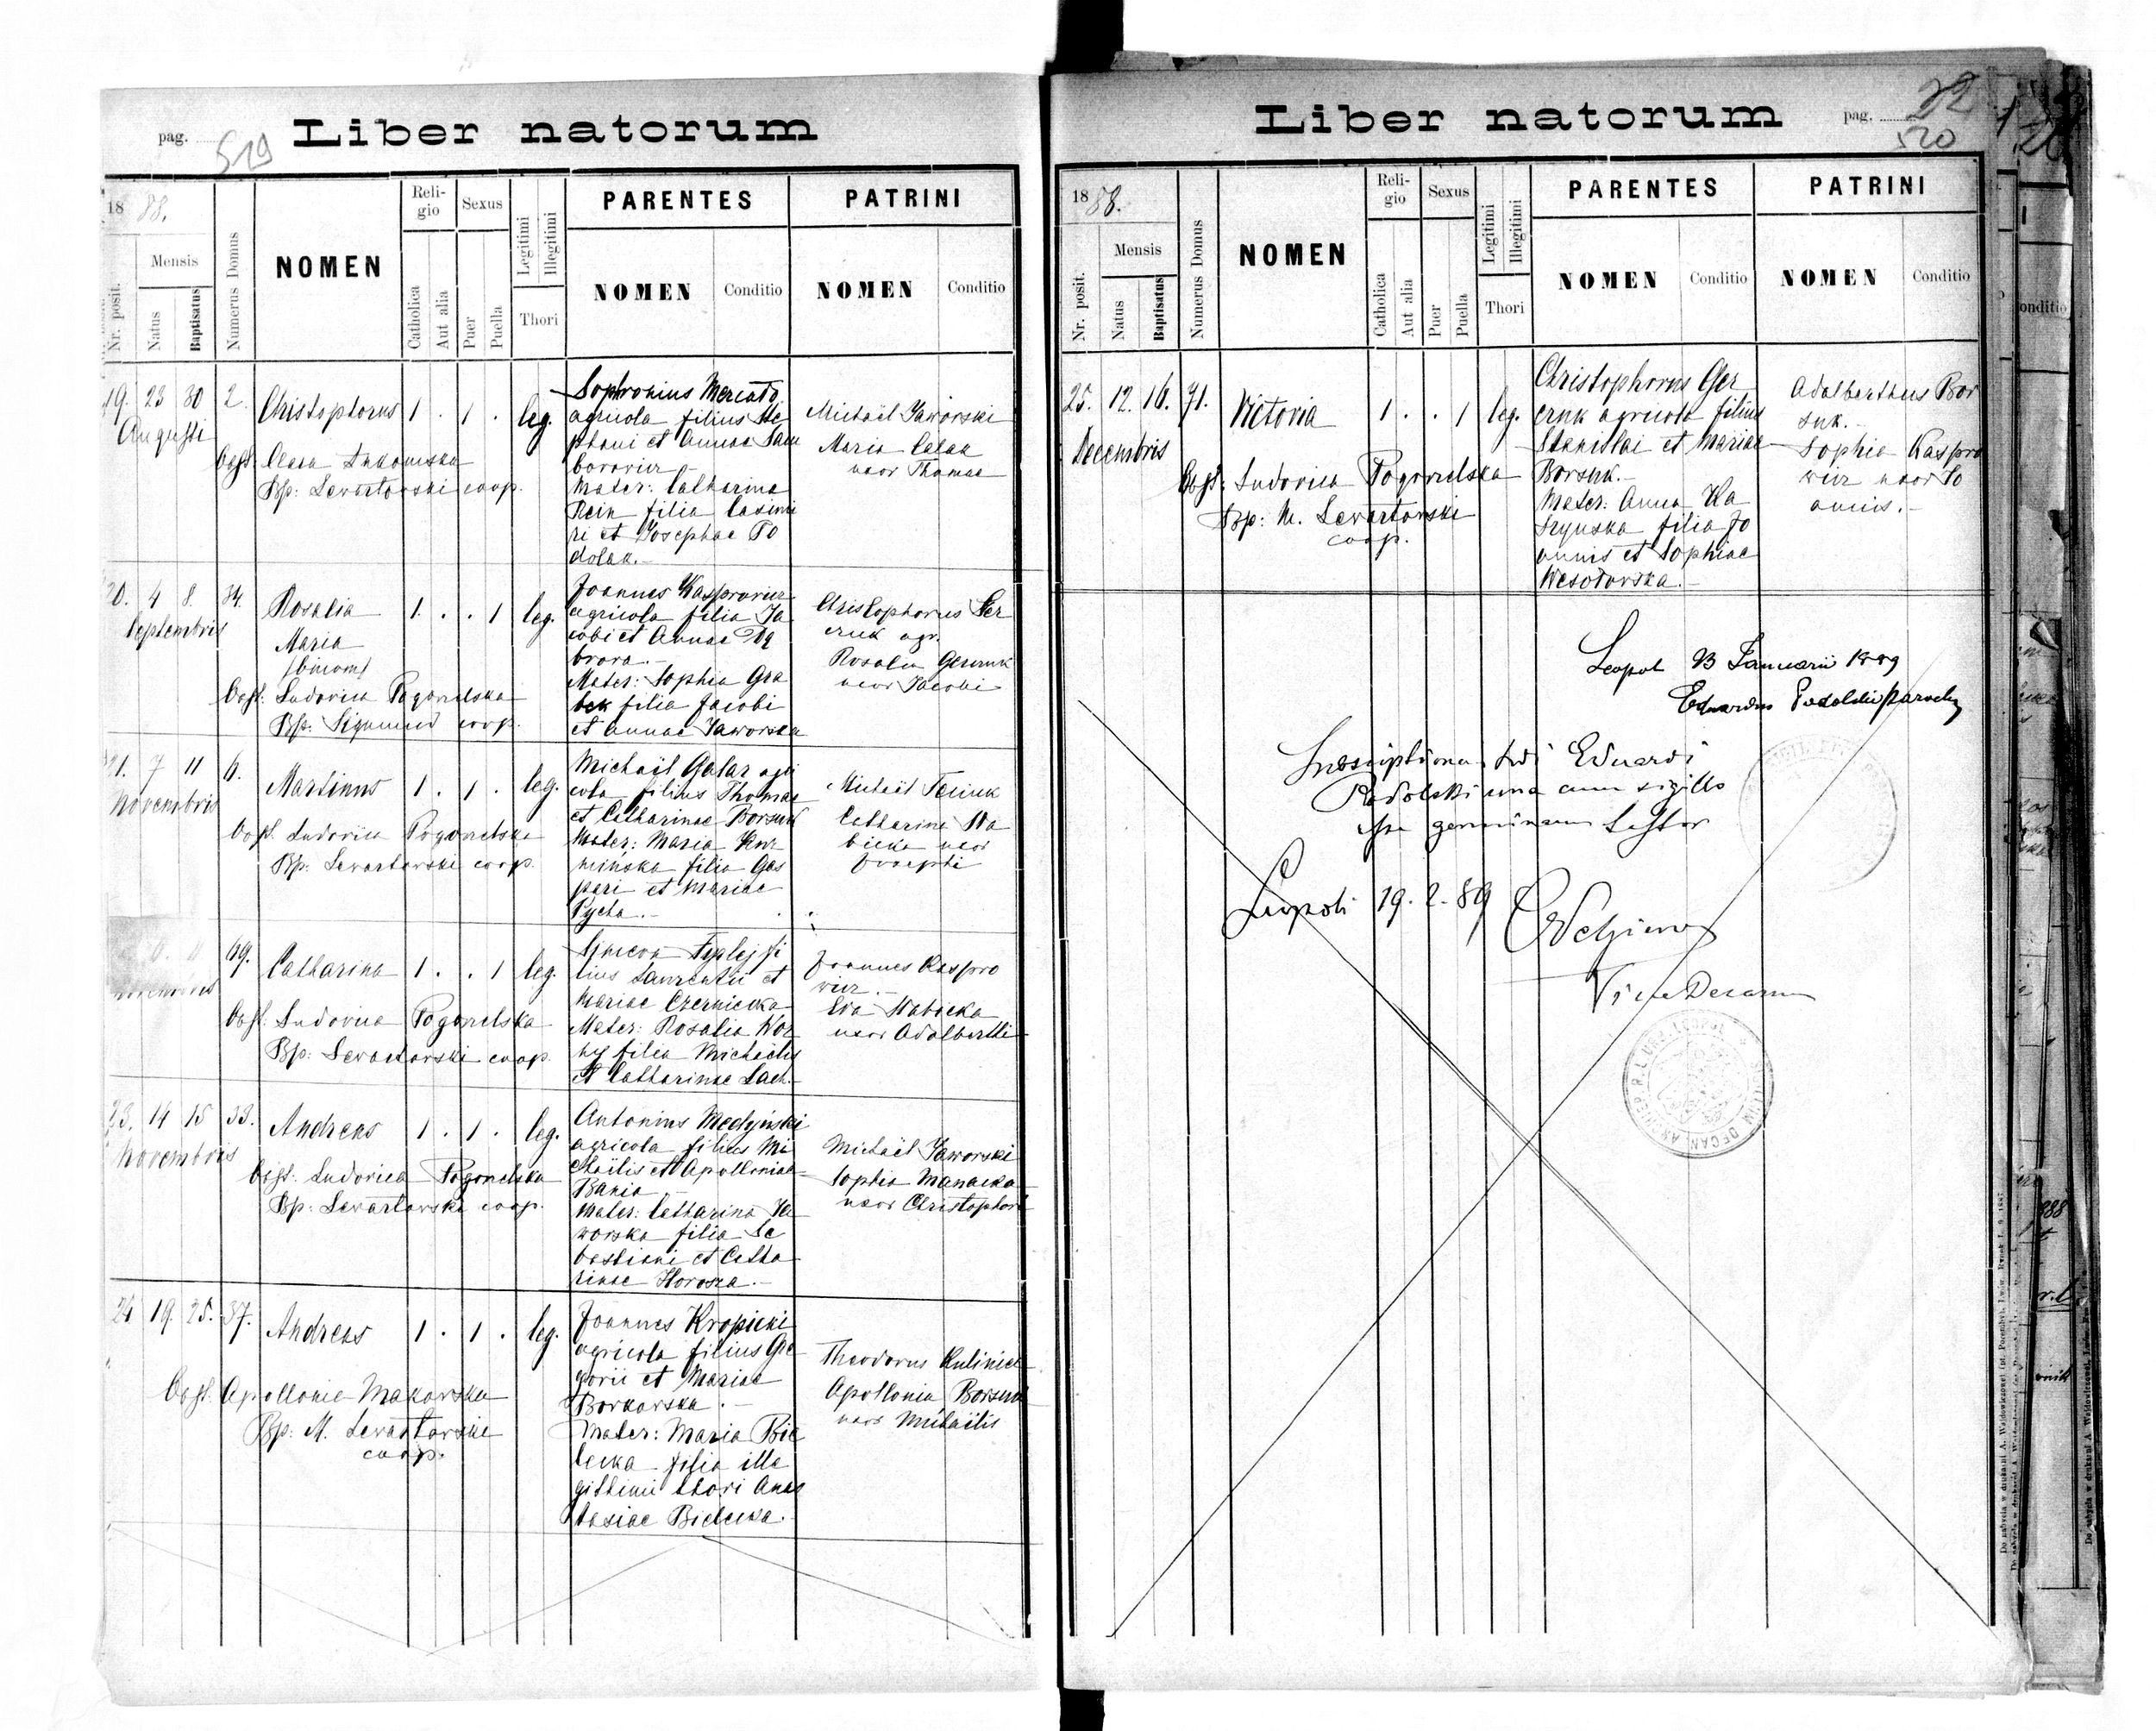 pag. 519 Liber natorum
1888.
Nr. posit.
Mensis
Natus
Baptisatus
Numerus Domus
NOMEN
Reli-
gio
Catholica
Aut alia
Sexus
Puer
Puella
Legitimi
Illegitimi
Thori
PARENTES
NOMEN
Conditio
PATRINI
NOMEN
Conditio
19. 23 30 2.
Augusti
Christophorus 1 . 1 . leg.
Obst. Clara
Bp: Lewartowski coop.
Sophronius
agricola filius Ste
phani et Annae Sam
borowicz
Mater: Catharina
Rein filia Casimi
ri et Josephae Po
dolak.-
Michaël Jaworski
Maria
uxor Thomae
20. 4 8. 34.
Septembris
Rosalia 1 . . 1 leg.
Maria
(binom)
Obst. Ludovica Pogorelska
Bp: Sigmund coop.
Joannes Kasprowicz
agricola filia Ja
cobi et Annae Dą
browa.-
Mater: Sophia Gra
bek filia Jacobi
et Annae Jaworska
Christophorus Ger
czuk agr.
Rosalia Gerczuk
uxor Jacobi
21. 7 11 6.
Novembris
Martinus 1 . 1 . leg.
Obst. Ludovica Pogorelska
Bp: Lewartowski coop.
Michaël Galar agri
cola filius Thomae
et Catharinae Borsuk
Mater: Maria
mińska filia Gas
pari et Mariae
Pycha.-
Michaël
Catharina Ha
bicka uxor
Josephi
69.
Novembris
Catharina 1 . . 1 leg.
Obst. Ludovica Pogorelska
Bp: Lewartowski coop.
Simeon fi
lius Laurentii et
Mariae Czernicka
Mater: Rosalia Woz
ny filia Michaelis
et Catharinae Lach.-
Joannes Kaspro
wicz.-
Eva Habicka
uxor Adalberthi
23. 14 15 33.
Novembris
Andreas 1 . 1 . leg.
Obst. Ludovica Pogorelska
Bp: Lewartowski coop.
Antonius Medyński
agricola filius Mi
chaëlis et Apolloniae
Bania.-
Mater: Catharina Ja
worska filia Se
bastiani et Catha
rinae Horosza.-
Michaël Jaworski
Sophia Manacka
uxor Christophori
24 19. 25. 37.
Andreas 1 . 1 . leg.
Obst. Apollonia Makowska
Bp: M. Lewartowski
coop.
Joannes Kropicki
agricola filius Gre
gorii et Mariae
Borkowska.-
Mater: Maria Bie
lecka filia ille
gittimi thori Anas
tasiae Bielecka.
Theodorus Kulinicz
Apollonia Borsuk
uxor Michaëlis
Liber natorum pag. 22
520
1888.
Nr. posit.
Mensis
Natus
Baptisatus
Numerus Domus
NOMEN
Reli-
gio
Catholica
Aut alia
Sexus
Puer
Puella
Legitimi
Illegitimi
Thori
PARENTES
NOMEN
Conditio
PATRINI
NOMEN
Conditio
25. 12. 16. 71.
Decembris
Victoria 1 . . 1 leg.
Obst: Ludovica Pogorelska
Bp: M. Lewartowski
coop.
Christophorus Ger
czuk agricola filius
Stanislai et Mariae
Borsuk.-
Mater: Anna Ka
filia Jo
annis et Sophiae
Wesołowska.-
Adalberthus Bor
suk.-
Sophia Kaspro
wicz uxor Jo
annis.-
Leopol 23 Januarii 1889
Eduardus Podolski parochus
Subscriptionem Eduardi
Podolski una cum sigillo
esse genuinam testor
Leopoli 19. 2. 89
Vice Decanus